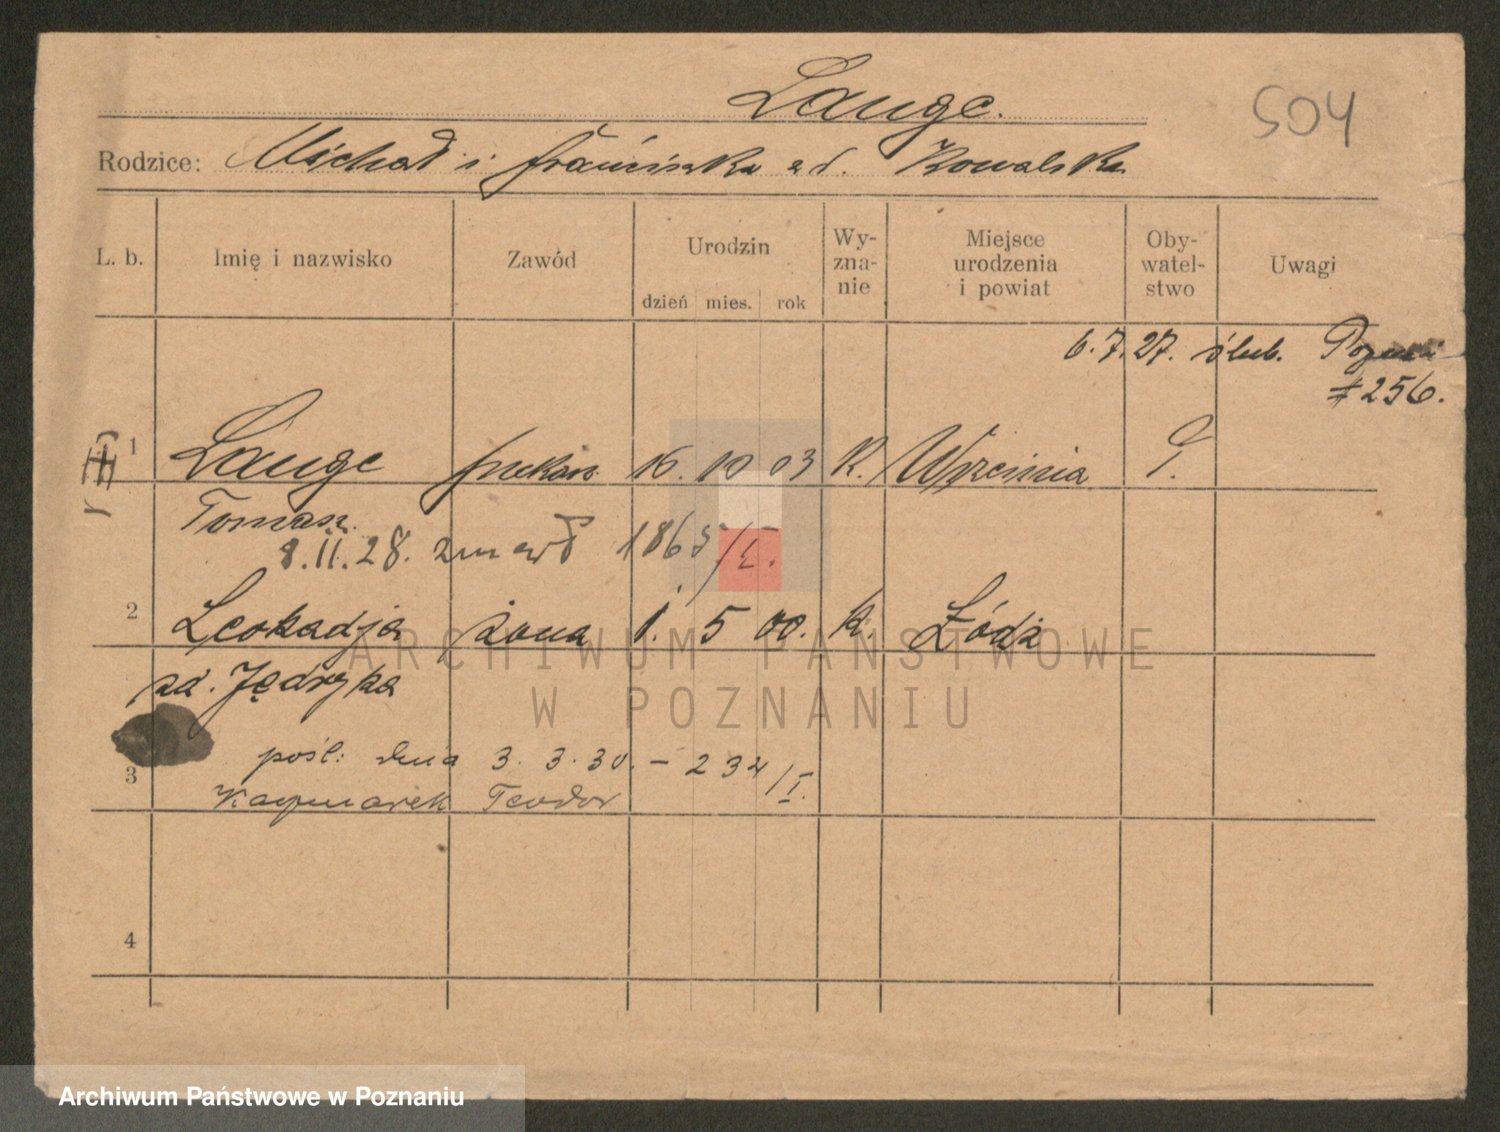 Lange.
504
Rodzice: Michał i Franciszka zd. Kowalska
L. b. Imię i nazwisko Zawód Urodzin dzień mies. rok Wy-zna-nie Miejsce urodzenia i powiat Oby-watel-stwo Uwagi
6.7.27. ślub. Poznań
#256.
1 Lange piekarz 16. 10 03 K. Września P.
Tomasz
8.II.28. zmarł 1865/I.
2 Leokadja żona 1. 5 00. K. Łódź
zd. Jędryka
pośl: dnia 3. 3. 30. – 234/I.
3 Kaczmarek Teodor
4
ARCHIWUM PAŃSTWOWE
W POZNANIU
Archiwum Państwowe w Poznaniu